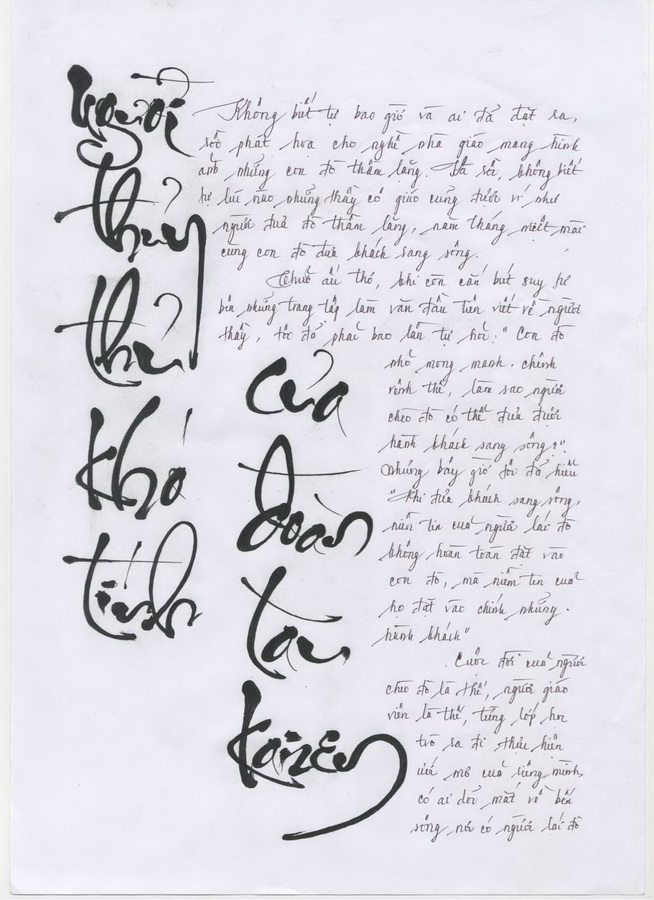 Người
thủy
thủ
khó
tính
của
đoàn
tàu
kaizen
Không biết tự bao giờ và ai đã đặt ra,
rồi phát họa cho nghề nhà giáo mang hình
ảnh những con đò thầm lặng. Và rồi, không biết
tự lúc nào những thầy cô giáo cũng được ví như
người đưa đò thầm lặng, năm tháng miệt mài
cùng con đò đưa khách sang sông.
Thuở ấu thơ, khi còn cắn bút suy tư
bên những trang tập làm văn đầu tiên viết về người
thầy, tôi đã phải bao lần tự hỏi: " Con đò
nhỏ mong manh. chênh
vênh thế, làm sao người
chèo đò có thể đưa được
hành khách sang sông?".
Nhưng bây giờ tôi đã hiểu
"Khi đưa khách sang sông,
niềm tin của người lái đò
không hoàn toàn đặt vào
con đò, mà niềm tin của
họ đặt vào chính những.
hành khách"
Cuộc đời của người
chèo đò là thế, người giáo
viên là thế, từng lớp học
trò ra đi thực hiện
ước mơ của riêng mình,
có ai dõi mắt về bến
sông nơi có người lái đò